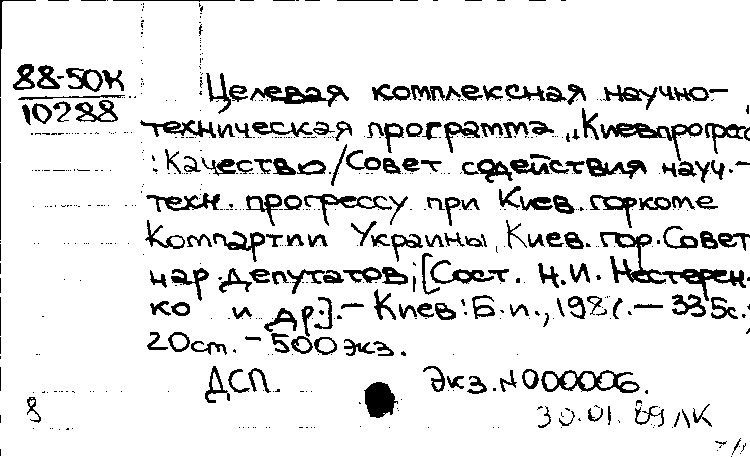 88-50К
10288
Целевая комплексная научно-
техническая программа „Киевпрогресс
: Качество / Совет содействия науч.-
техн. прогрессу при Киев. горкоме
Компартии Украины, Киев. гор. Совет
нар. депутатов; [Сост. Н.И. Нестерен-
ко и др.]. – Киев: Б.и., 198 . – 335с.;
20см. – 500 экз.
ДСП. Экз. N000006.
8
30.01.89 ЛК